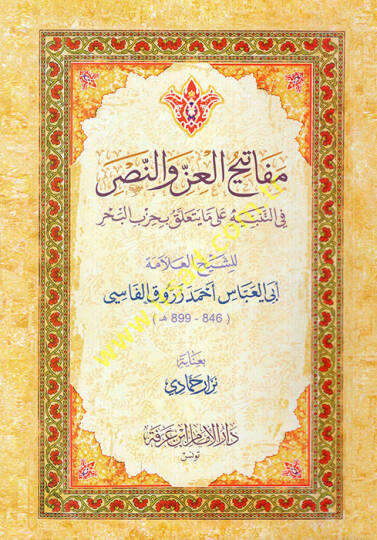 مفاتيح العز والنصر
في التنبيه على ما يتعلق بحزب البحر
للشيخ العلامة
أبي العباس أحمد زروق الفاسي
( 846 - 899 هـ )
بعناية
نزار حمادي
دار الإمام ابن عرفة
تونس